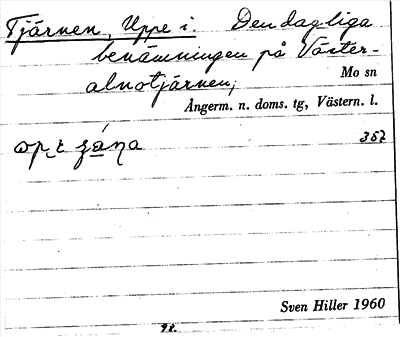 Tjärnen, Uppe i. Den dagliga
benämningen på Väster-
alnötjärnen; Mo sn
Ångerm. n. doms. tg, Västern. l.
357
Sven Hiller 1960